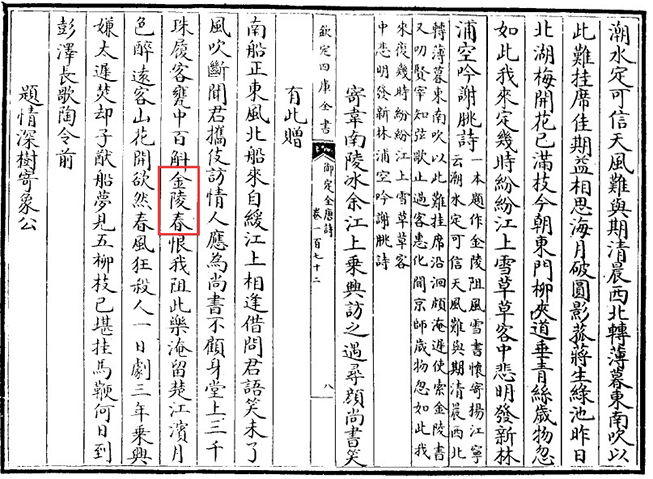 潮水定可信天風難與期清晨西北轉薄暮東南吹以
此難挂席佳期益相思海月破圓影菰蔣生綠池昨日
北湖梅開花已滿枝今朝東門柳夾道垂青絲歲物忽
如此我來定幾時紛紛江上雪草草客中悲明發新林
浦空吟謝朓詩
一本題作金陵阻風雪書懷寄揚江寧
云潮水定可信天風難與期清晨西北
轉薄暮東南吹以此難挂席沿洄頗淹遲使索金陵書
又叨賢宰知弦歌止過客惠化聞京師歲物忽如此我
來復幾時紛紛江上雪草草客
中悲明發新林浦空吟謝朓詩
欽定四庫全書
御定全唐詩
卷一百七十二
八
寄韋南陵冰余江上乘興訪之遇尋顏尚書笑
有此贈
南船正東風北船來自緩江上相逢借問君語笑未了
風吹斷聞君攜伎訪情人應為尚書不顧身堂上三千
珠履客甕中百斛金陵春恨我阻此樂淹留楚江濱月
色醉遠客山花開欲然春風狂殺人一日劇三年乘興
嫌太遲焚却子猷船夢見五柳枝已堪挂馬鞭何日到
彭澤長歌陶令前
題情深樹寄象公